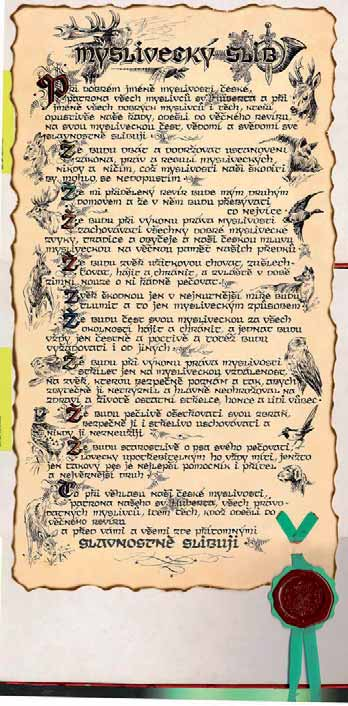 MYSLIVECKÝ SLIB
Při dobrém jméně myslivosti české,
patrona všech myslivců sv. Huberta a při
jméně všech dobrých myslivců i těch, kteří
opustivše naše řady, odešli do věčného revíru,
na svou mysliveckou čest, vědomí a svědomí své
slavnostně slibuji
Že budu dbát a dodržovat ustanovení
zákona, práv a regulí mysliveckých,
nikdy a ničím, což myslivosti naší škoditi
by mohlo, se nedopustím
Že mi přidělený revír bude mým druhým
domovem a že v něm budu přebývati
co nejvíce
Že budu při výkonu práva myslivosti
zachovávati všechny dobré myslivecké
zvyky, tradice a obyčeje a naši českou mluvu
mysliveckou na věčnou paměť našich předků
Že budu zvěř užitkovou chovat, zušlech-
ťovat, hájit a chránit, a zvláště v době
zimní nouze o ni řádně pečovat
Zvěř škodnou jen v nejnutnější míře budu
tlumit a to jen mysliveckým způsobem
Že budu čest svou mysliveckou za všech
okolností hájit a chránit, a jednat budu
vždy jen čestně a poctivě a totéž budu
vyžadovati i od jiných
Že budu při výkonu práva myslivosti
střílet jen na mysliveckou vzdálenost,
na zvěř, kterou bezpečně poznám a tak, abych
zbytečně ji netrýznil a hlavně neohrožoval na
zdraví a životě ostatní střelce, honce a lidi vůbec
Že budu pečlivě ošetřovati svou zbraň,
bezpečně ji i střelivo uschovávati a
nikdy jí nezneužiji
Že budu starostlivě o psa svého pečovati,
lovecky upotřebitelným ho vždy míti, jenžto
jen takový pes je nejlepší pomocník i přítel
a nejvěrnější druh
To při věhlasu naší české myslivosti,
patrona našeho sv. Huberta, všech právo-
platných myslivců, item těch, kdož odešli do
věčného revíru
a před vámi a všemi zde přítomnými
SLAVNOSTNĚ SLIBUJI